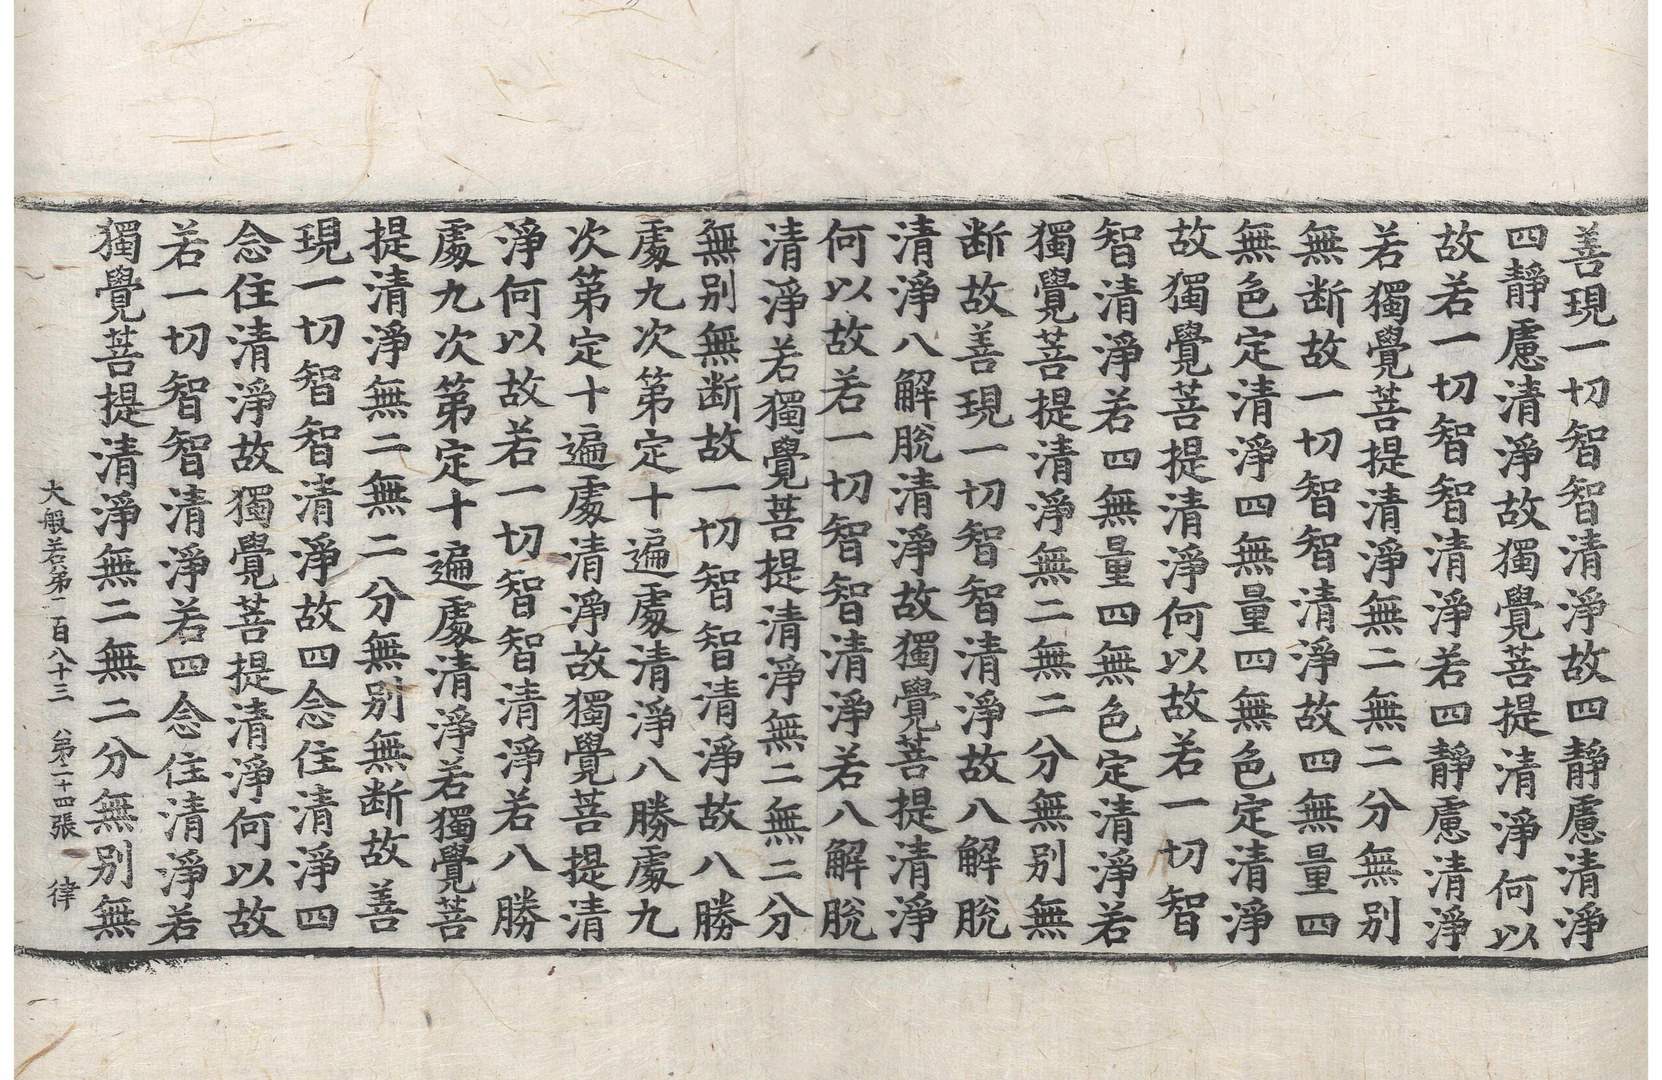 善現一切智智清淨故四靜慮清淨
四靜慮清淨故獨覺菩提清淨何以
故若一切智智清淨若四靜慮清淨
若獨覺菩提清淨無二無二分無別
無断故一切智智清淨故四無量四
無色定清淨四無量四無色定清淨
故獨覺菩提清淨何以故若一切智
智清淨若四無量四無色定清淨若
獨覺菩提清淨無二無二分無別無
断故善現一切智智清淨故八解脫
清淨八解脫清淨故獨覺菩提清淨
何以故若一切智智清淨若八解脫
清淨若獨覺菩提清淨無二無二分
無別無断故一切智智清淨故八勝
處九次第定十遍處清淨八勝處九
次第定十遍處清淨故獨覺菩提清
淨何以故若一切智智清淨若八勝
處九次第定十遍處清淨若獨覺菩
提清淨無二無二分無別無断故善
現一切智智清淨故四念住清淨四
念住清淨故獨覺菩提清淨何以故
若一切智智清淨若四念住清淨若
獨覺菩提清淨無二無二分無別無
大般若第一百八十三 第二十四張 律